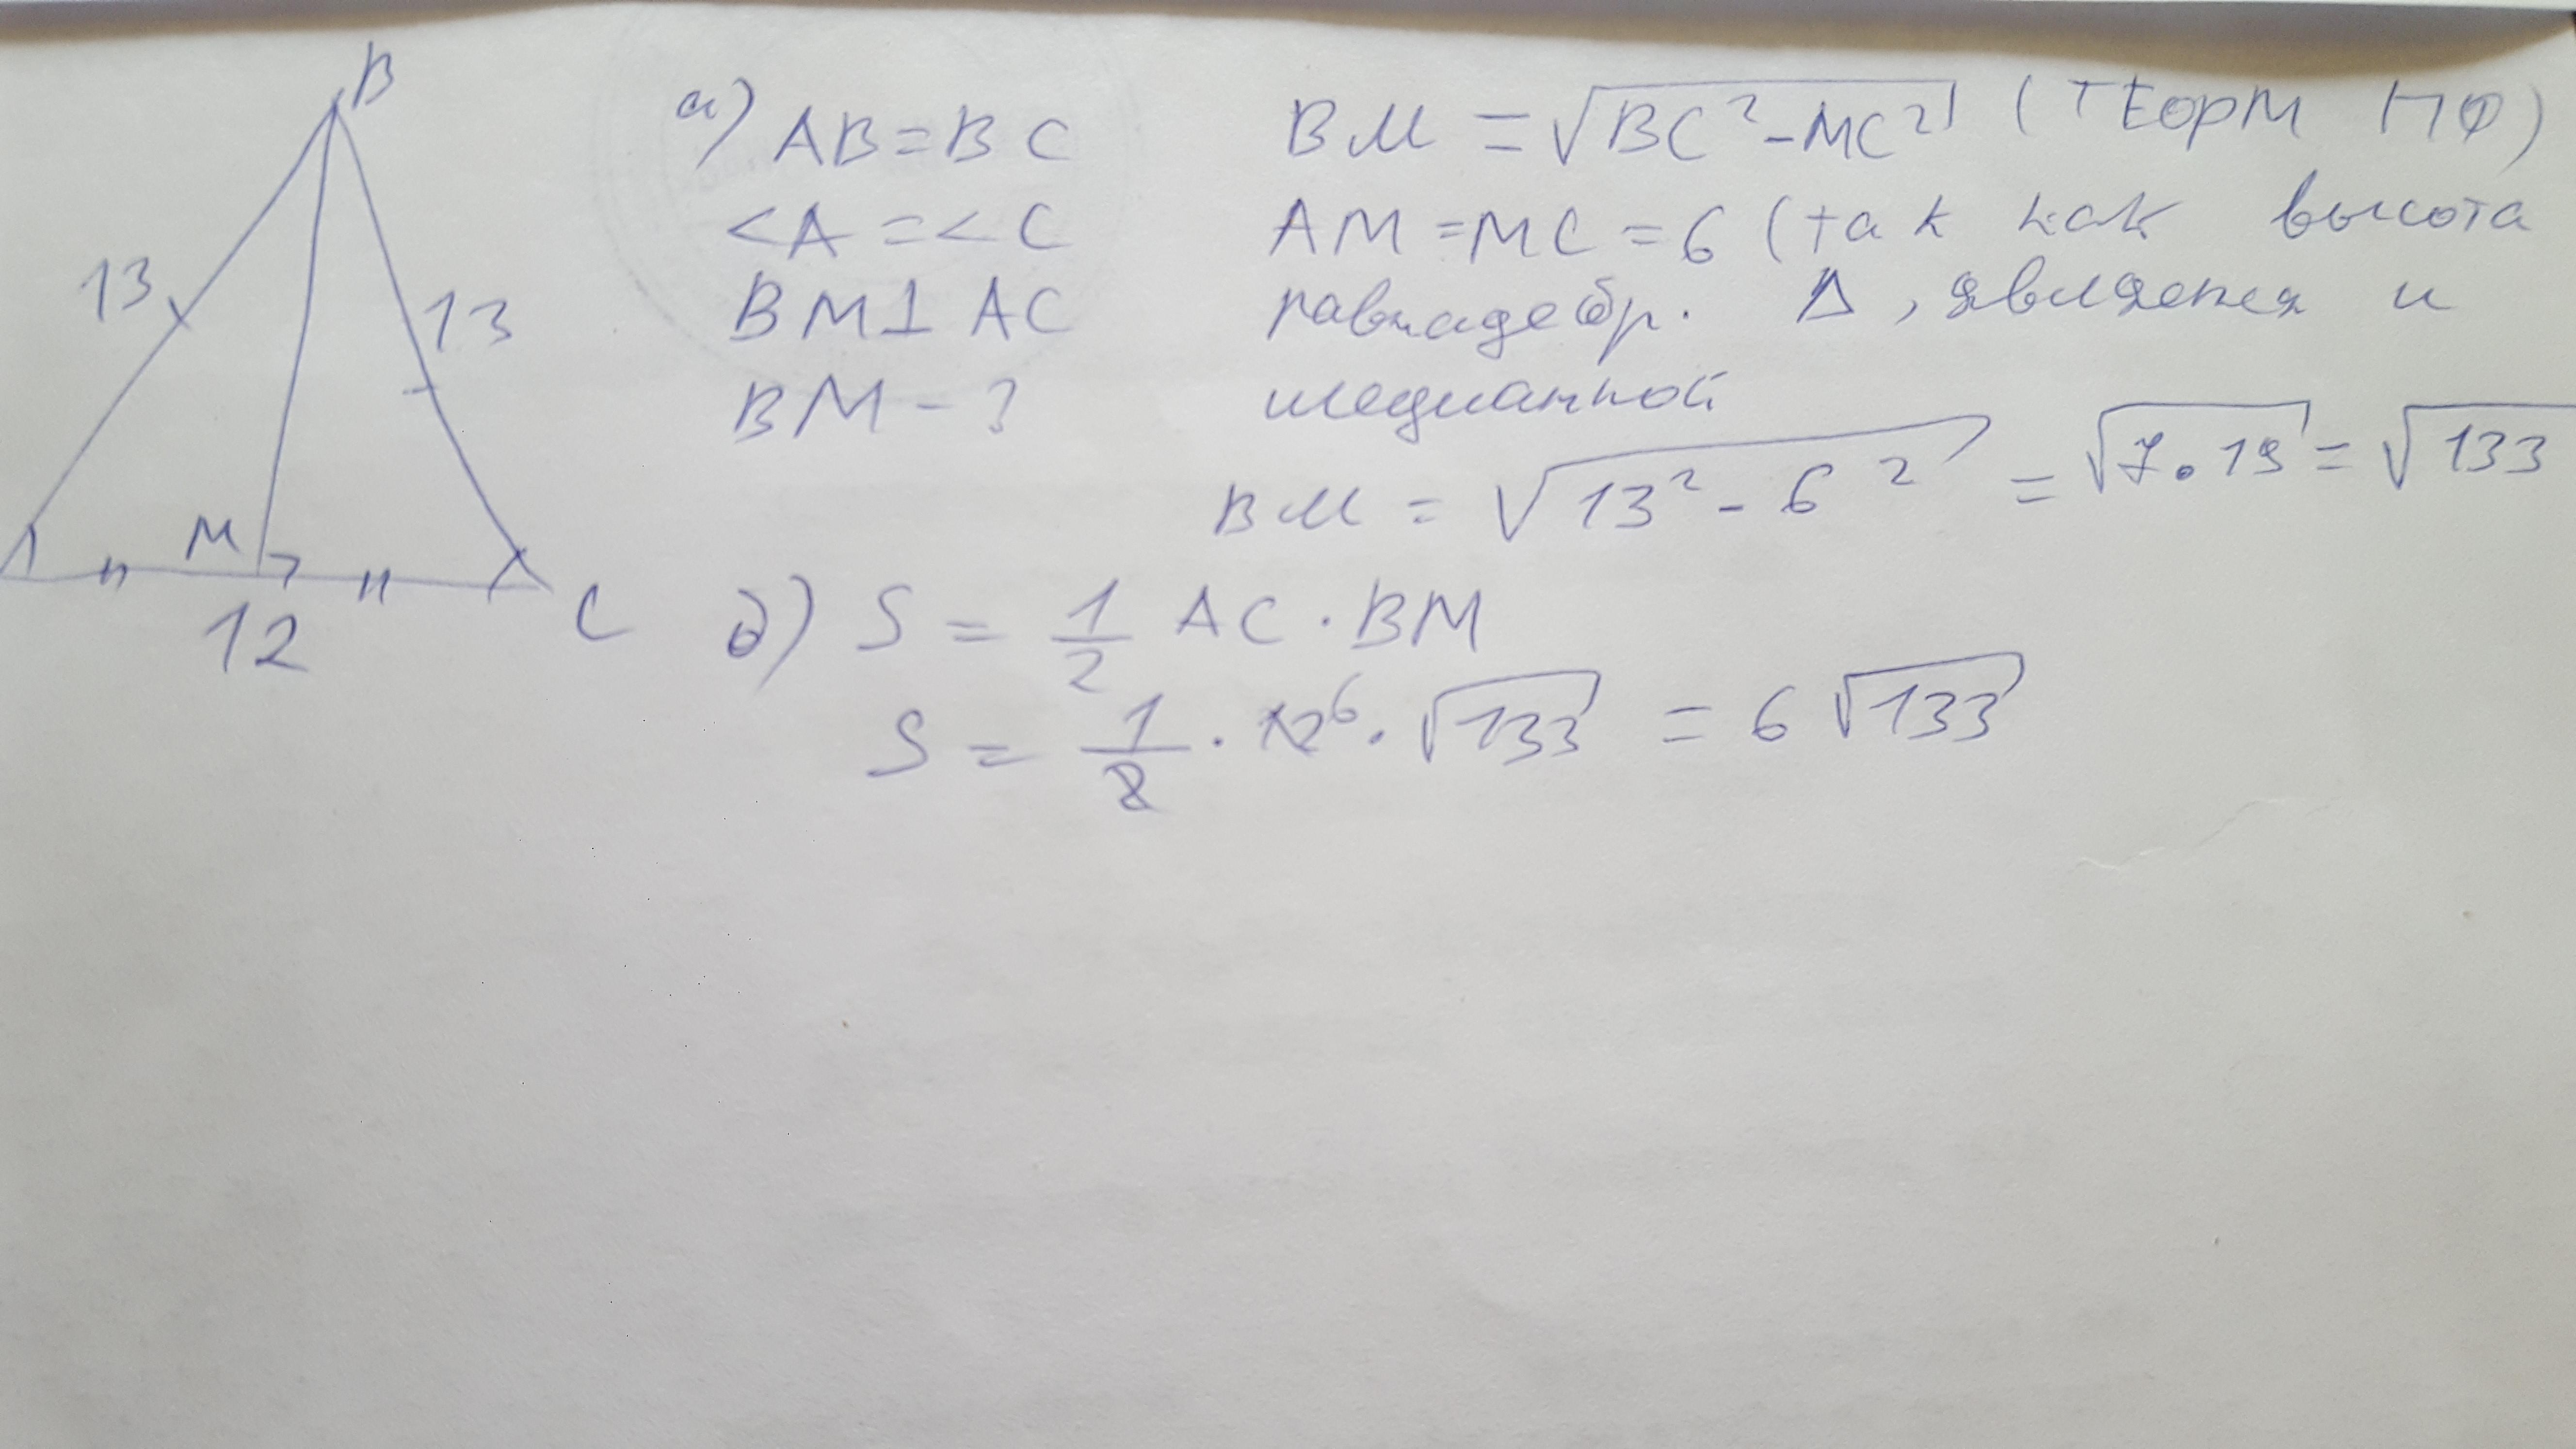 B
13
13
M
12
C
а) AB=BC
<A=<C
BM⊥AC
BM-?
BM=√BC²-MC² (ТЕОРМ ПФ)
AM=MC=6 (так как высота
равнадебр. Δ, является и
медианной
BM=√13²-6²=√7·19=√133
б) S=1/2 AC·BM
S=1/2·12⁶·√133=6√133